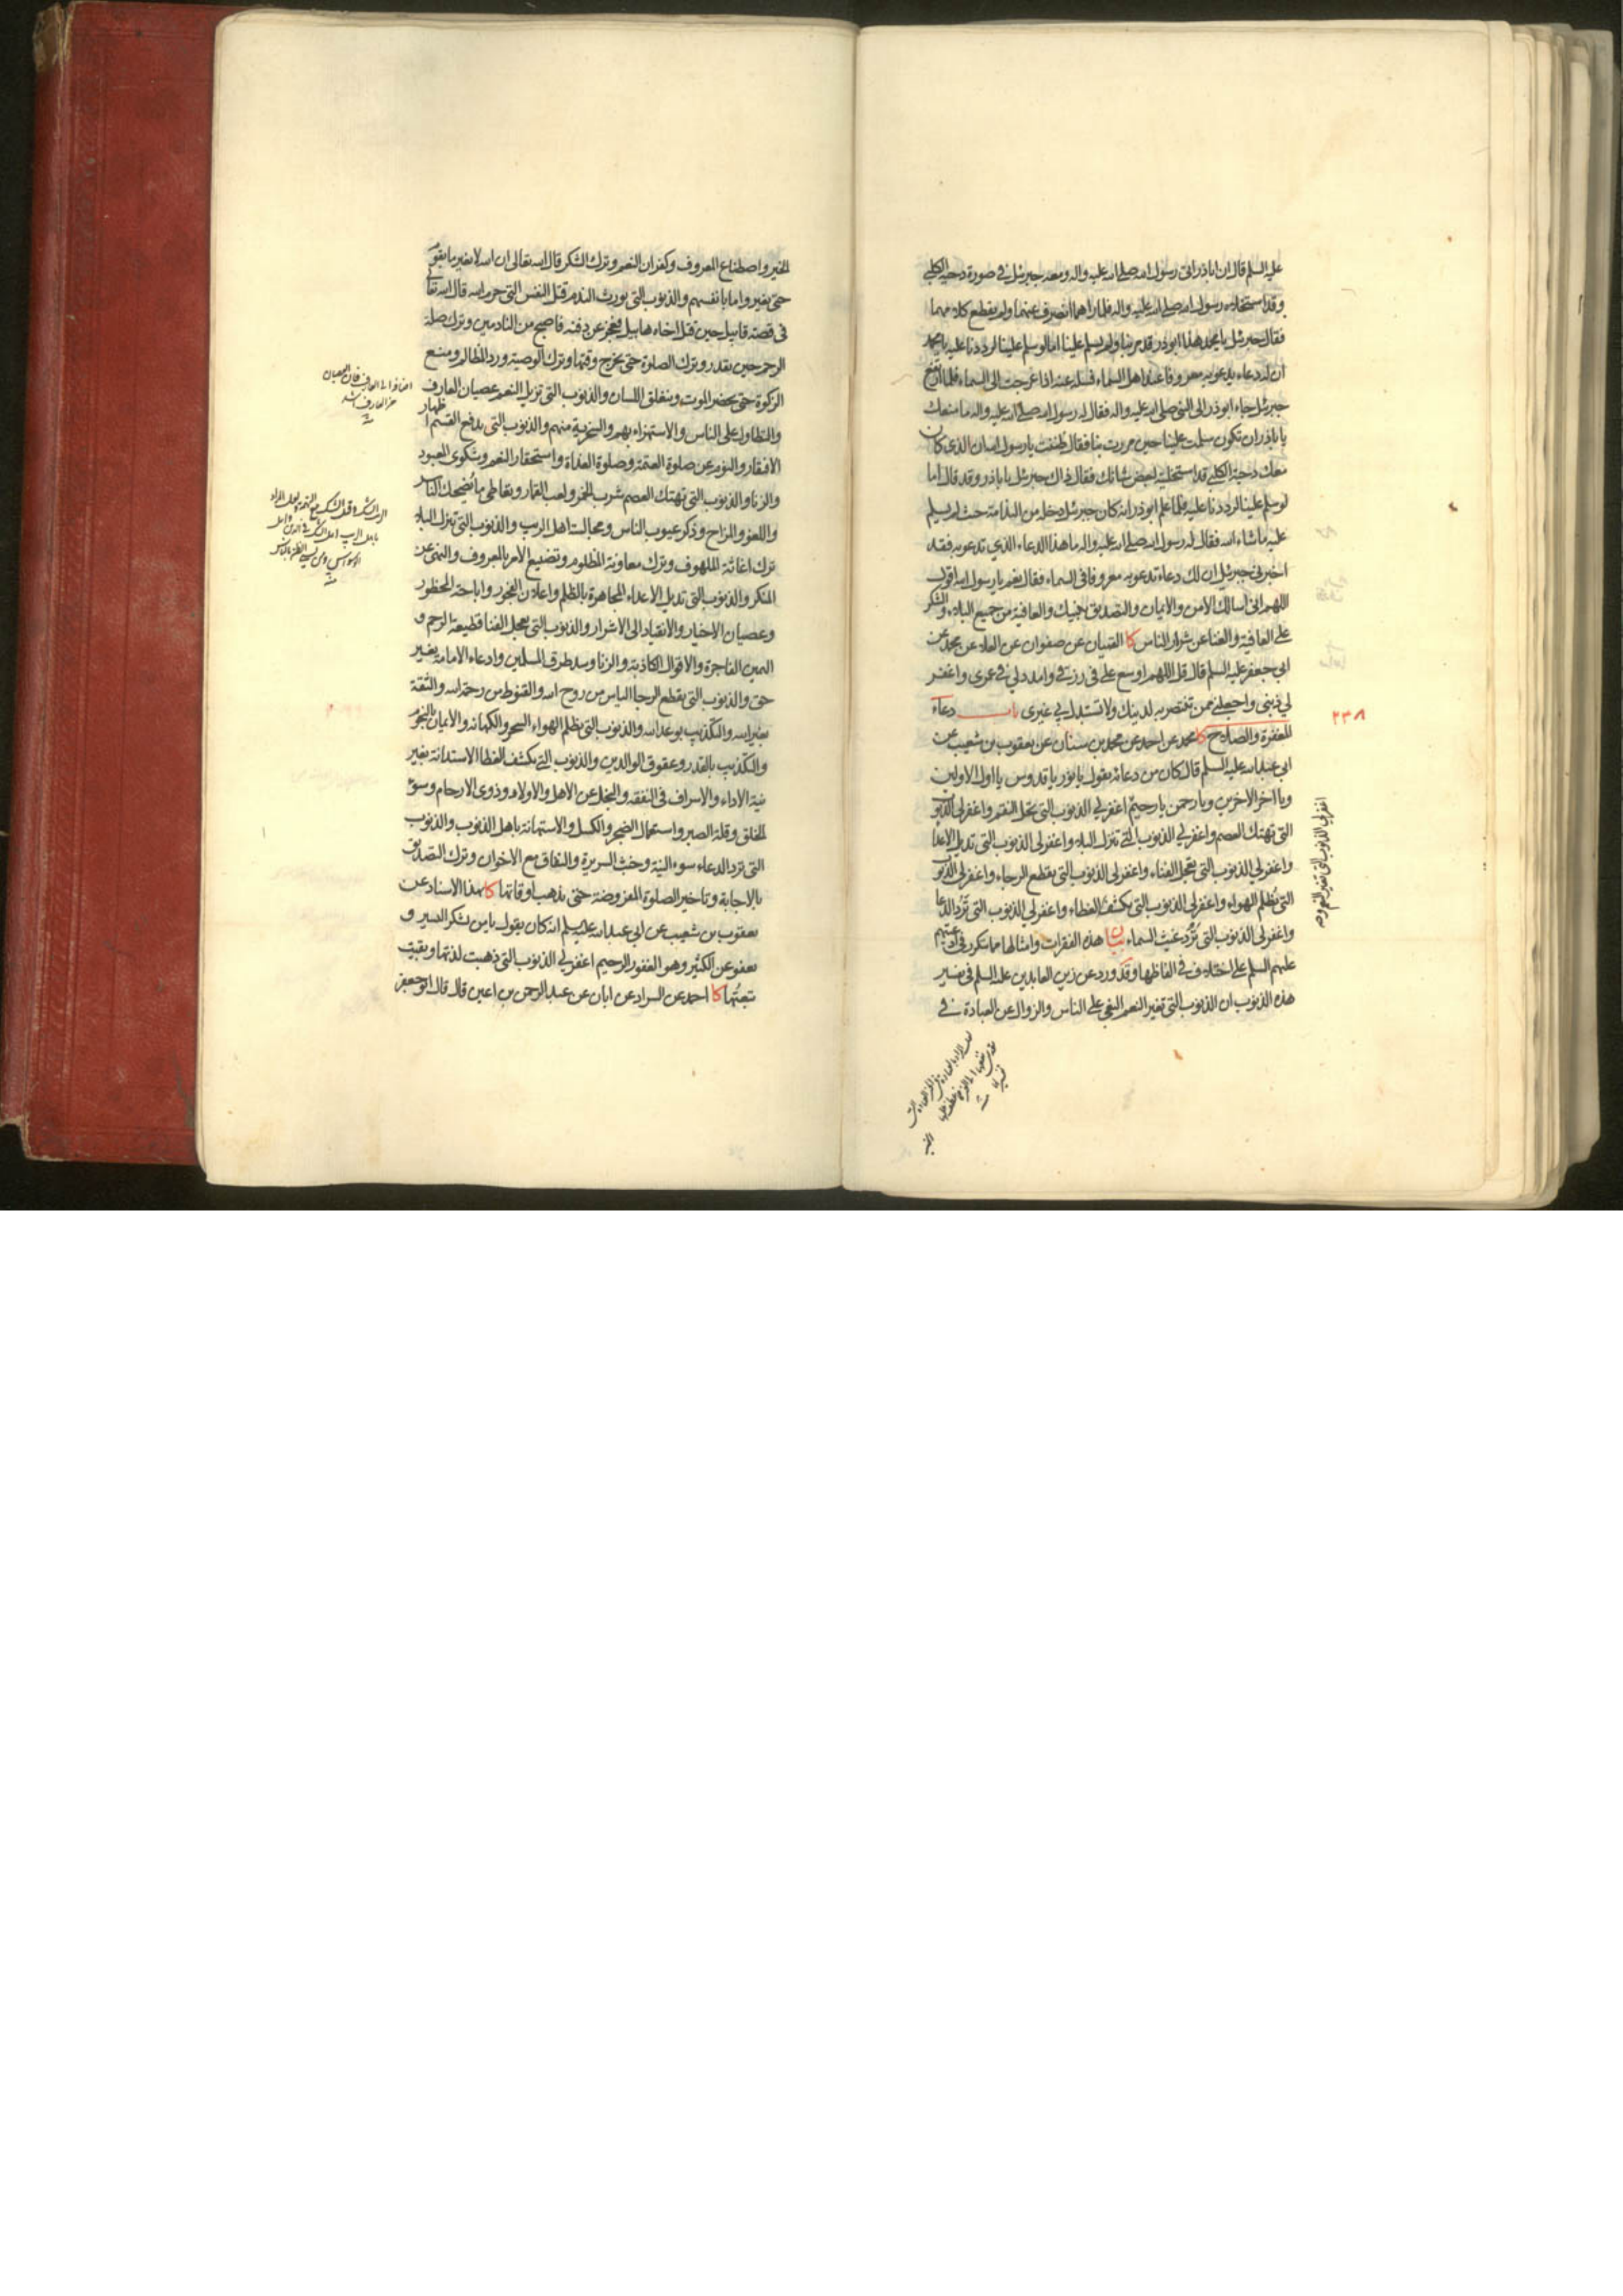 عليه السلم قال ان اباذر اتى رسول الله صلى الله عليه واله ومعه جبرئيل في صورة دحية الكلبي
وقد استخلاه رسول الله صلى الله عليه واله فلما راهما انصرف عنهما ولم يقطع كلامهما
فقال جبرئيل يا محمد هذا ابوذر قد مر بنا ولم يسلم علينا اما لو سلم علينا لرددنا عليه يا محمد
ان له دعاء يدعو به معروفا عند اهل السماء فسله عنه اذا عرجت الى السماء فلما ارتفع
جبرئيل جاء ابوذر الى النبي صلى الله عليه واله فقال له رسول الله صلى الله عليه واله ما منعك
يا باذر ان تكون سلمت علينا حين مررت بنا فقال ظننت يا رسول الله ان الذي كان
معك دحية الكلبي قد استخليته لبعض شانك فقال ذاك جبرئيل يا باذر وقد قال اما
لو سلم علينا لرددنا عليه فلما علم ابوذر انه كان جبرئيل دخله من الندامة حيث لم يسلم
عليه ما شاء الله فقال له رسول الله صلى الله عليه واله ما هذا الدعاء الذي تدعو به فقد
اخبرني جبرئيل ان لك دعاء تدعو به معروفا في السماء فقال نعم يا رسول الله اقول
اللهم اني اسالك الامن والايمان والتصديق بنبيك والعافية من جميع البلاء والشكر
على العافية والغنا عن شرار الناس كا القميان عن صفوان عن العلاء عن محمد عن
ابي جعفر عليه السلم قال قل اللهم اوسع علي في رزقي وامدد لي في عمري واغفر
لي ذنبي واجعلني ممن تنتصر به لدينك ولا تستبدل بي غيري باب دعاء
٢٣٨
المغفرة والصلاح كا محمد عن احمد عن محمد بن سنان عن يعقوب بن شعيب عن
ابي عبد الله عليه السلم قال كان من دعائه يقول يا نور يا قدوس يا اول الاولين
ويا اخر الاخرين ويا رحمن يا رحيم اغفر لي الذنوب التي تحل النقم واغفر لي الذنوب
اغفر لي الذنوب التي تغير النعم و
التي تهتك العصم واغفر لي الذنوب التي تنزل البلاء واغفر لي الذنوب التي تديل الاعدا
واغفر لي الذنوب التي تعجل الفناء واغفر لي الذنوب التي يقطع الرجاء واغفر لي الذنوب
التي تظلم الهواء واغفر لي الذنوب التي يكشف الغطاء واغفر لي الذنوب التي ترد الدعا
واغفر لي الذنوب التي ترد غيث السماء بيان هذه الفقرات وامثالها مما تكرر في ادعيتهم
عليهم السلم على اختلاف في الفاظها وقد ورد عن زين العابدين عليه السلم في تفسير
هذه الذنوب ان الذنوب التي تغير النعم البغي على الناس والزوال عن العبادة في
الخير
الخير واصطناع المعروف وكفران النعم وترك الشكر قال الله تعالى ان الله لا يغير ما بقوم
حتى يغيروا ما بانفسهم والذنوب التي يورث الندم قتل النفس التي حرم الله قال الله تعالى
في قصة قابيل حين قتل اخاه هابيل فعجز عن دفنه فاصبح من النادمين وترك صلة
الرحم حين يقدر وترك الصلوة حتى يخرج وقتها وترك الوصية ورد المظالم ومنع
الزكوة حتى يحضر الموت وينغلق اللسان والذنوب التي تزيل النعم عصيان العارف
والتطاول على الناس والاستهزاء بهم والسخرية منهم والذنوب التي يدفع القسم اظهار
الافتقار والنوم عن صلوة العتمة وصلوة الغداة واستحقار النعم وشكوى المعبود
والزنا والذنوب التي تهتك العصم شرب الخمر ولعب القمار وتعاطى ما يضحك الناس
واللغو والمزاح وذكر عيوب الناس ومجالسة اهل الريب والذنوب التي تنزل البلاء
ترك اغاثة الملهوف وترك معاونة المظلوم وتضييع الامر بالمعروف والنهي عن
المنكر والذنوب التي تديل الاعداء المجاهرة بالظلم واعلان الفجور واباحة المحظور
وعصيان الاخيار والانقياد الى الاشرار والذنوب التي تعجل الفنا قطيعة الرحم و
اليمين الفاجرة والاقوال الكاذبة والزنا وسد طرق المسلمين وادعاء الامامة بغير
حق والذنوب التي يقطع الرجا الياس من روح الله والقنوط من رحمة الله والثقة
بغير الله والتكذيب بوعد الله والذنوب التي تظلم الهواء السحر والكهانة والايمان بالنجوم
والتكذيب بالقدر وعقوق الوالدين والذنوب التي يكشف الغطا الاستدانة بغير
نية الاداء والاسراف في النفقة والبخل عن الاهل والاولاد وذوي الارحام وسوء
الخلق وقلة الصبر واستعمال الضجر والكسل والاستهانة باهل الذنوب والذنوب
التي ترد الدعاء سوء النية وخبث السريرة والنفاق مع الاخوان وترك التصديق
بالاجابة وتاخير الصلوة المفروضة حتى يذهب اوقاتها كا بهذا الاسناد عن
يعقوب بن شعيب عن ابي عبد الله عليه السلم انه كان يقول يا من يشكر اليسير و
يعفو عن الكثير وهو الغفور الرحيم اغفر لي الذنوب التي ذهبت لذتها وبقيت
تبعتها كا احمد عن السراد عن ابان عن عبد الرحمن بن اعين قال قال ابو جعفر